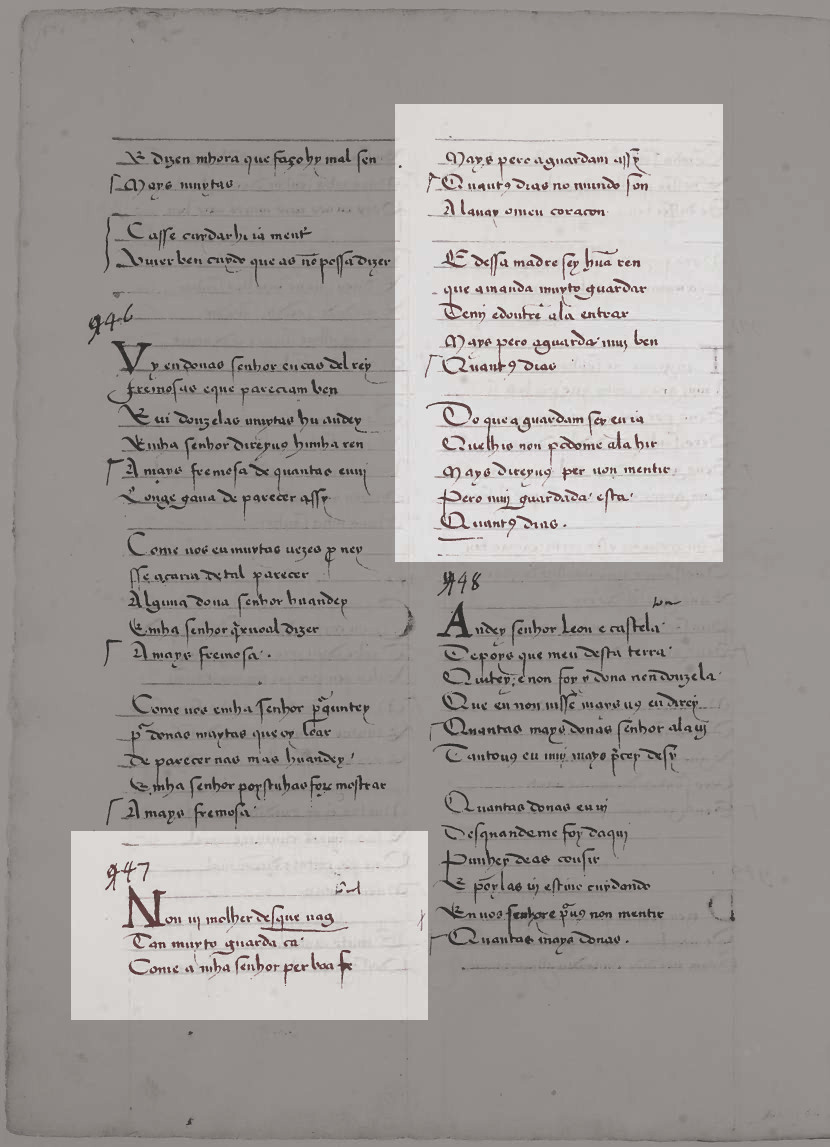 E dizen mhora que faço hy mal sen
Mays muytas
Casse cuydarhi ia ment
Viuer ben cuydo que as nō possa dizer
946
Vy eu donas senhor en cas del rey
fremosas e que pareciam ben
E ui donzelas muytas hu andey
E mha senhor direyuꝯ hunha ren
A mays fremosa de quantas eu uij
Longe gaua de parecer assy
Come uos eu muytas uezes ꝓuey
sse acaria de tal parecer
Alguna dona senhor hu andey
E mha senhor dizer
A mays fremosa
Come uos e mha senhor
donas muytas que oy loar
de parecer nas mas hu andey
E mha senhor poys mostrar
A mays fremosa
947
Non uij molher desque naç
Tan muyto guarda ca
Come a mha senhor per boa fe
Mays pero aguardam assy
Quantꝯ dias no mundo son
Ala uay o meu coraçon
E dessa madre sey hūa ren
que a manda muyto guardar
De mj e doutre ala entrar
Mays pero aguarda muj ben
Quantꝯ dias
Do que aguardam sey eu ia
Quelhis non ala hir
Mays direyuꝯ per non mentir
Pero muj guardada esta
Quantꝯ dias.
948
Andey senhor Leon e castela
Depoys que meu desta terra
Quitey, e non foy y dona nen donzela
Que eu non uisse mays uꝯ eu direy
Quantas mays donas senhor ala uij
Tanto uꝯ eu muj mays desy
Quantas donas eu uij
Desquandeme foy daquj
Punhey de as cousir
E poylas uij estiue cuydando
En uos senhor e non mentir
Quantas mays donas.